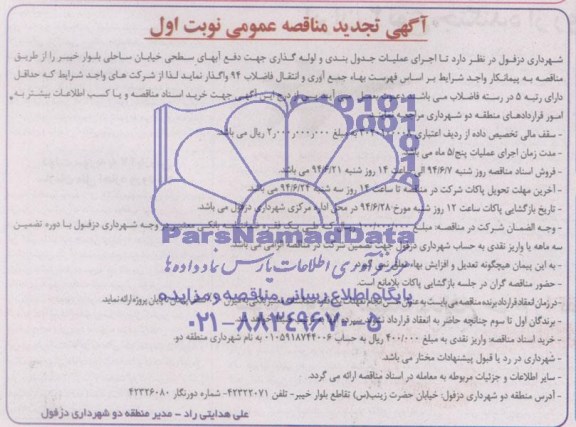 آگهی تجدید مناقصه عمومی نوبت اول
شهرداری دزفول در نظر دارد تا اجرای عملیات جدول بندی و لوله گذاری جهت دفع آبهای سطحی خیابان ساحلی بلوار خیبر را از طریق
مناقصه به پیمانکار واجد شرایط بر اساس فهرست بهاء جمع آوری و انتقال فاضلاب ۹۴ واگذار نماید لذا از شرکت های واجد شرایط که حداقل
دارای رتبه ۵ در رسته فاضلاب می باشند جهت خرید اسناد مناقصه و یا کسب اطلاعات بیشتر به
امور قراردادهای منطقه دو شهرداری مراجعه نمایند
- سقف مالی تخصیص داده از ردیف اعتباری به مبلغ ۲/۰۰۰/۰۰۰/۰۰۰ ریال می باشد.
- مدت زمان اجرای عملیات پنج/۵ ماه می باشد.
- فروش اسناد مناقصه روز شنبه ۹۴/۶/۷ الی ساعت ۱۴ روز شنبه ۹۴/۶/۲۱ می باشد.
- آخرین مهلت تحویل پاکات شرکت در مناقصه تا ساعت ۱۴ روز سه شنبه ۹۴/۶/۲۴ می باشد.
- تاریخ بازگشایی پاکات ساعت ۱۲ روز شنبه مورخ ۹۴/۶/۲۸ در محل اداره مرکزی شهرداری دزفول می باشد.
- وجه الضمان شرکت در مناقصه: مبلغ در وجه شهرداری دزفول با دوره تضمین
سه ماهه یا واریز نقدی به حساب شهرداری دزفول جهت تضمین شرکت در مناقصه الزامی می باشد.
- به این پیمان هیچگونه تعدیل و افزایش بهاء
- حضور مناقصه گران در جلسه بازگشایی پاکات بلامانع است.
در زمان انعقاد قرارداد برنده مناقصه می بایست به عنوان پایان پروژه ارائه نماید.
- برندگان اول تا سوم چنانچه حاضر به انعقاد قرارداد نشوند سپرده
- خرید اسناد مناقصه: واریز نقدی به مبلغ ۴۰۰/۰۰۰ ریال به حساب ۰۱۰۵۹۱۸۷۴۴۰۰۶ به نام شهرداری منطقه دو.
- شهرداری در رد یا قبول پیشنهادات مختار می باشد.
- سایر اطلاعات و جزئیات مربوطه به معامله در اسناد مناقصه ارائه می گردد.
- آدرس منطقه دو شهرداری دزفول: خیابان حضرت زینب(س) تقاطع بلوار خیبر- تلفن ۴۲۳۲۲۰۷۱- شماره دورنگار ۴۲۳۲۶۰۸۰
علی هدایتی راد - مدیر منطقه دو شهرداری دزفول
ParsNamadData
مرکز فرآوری اطلاعات پارس نماد داده ها
پایگاه اطلاع رسانی مناقصه و مزایده
۰۲۱-۸۸۳۴۹۶۷۰-۵